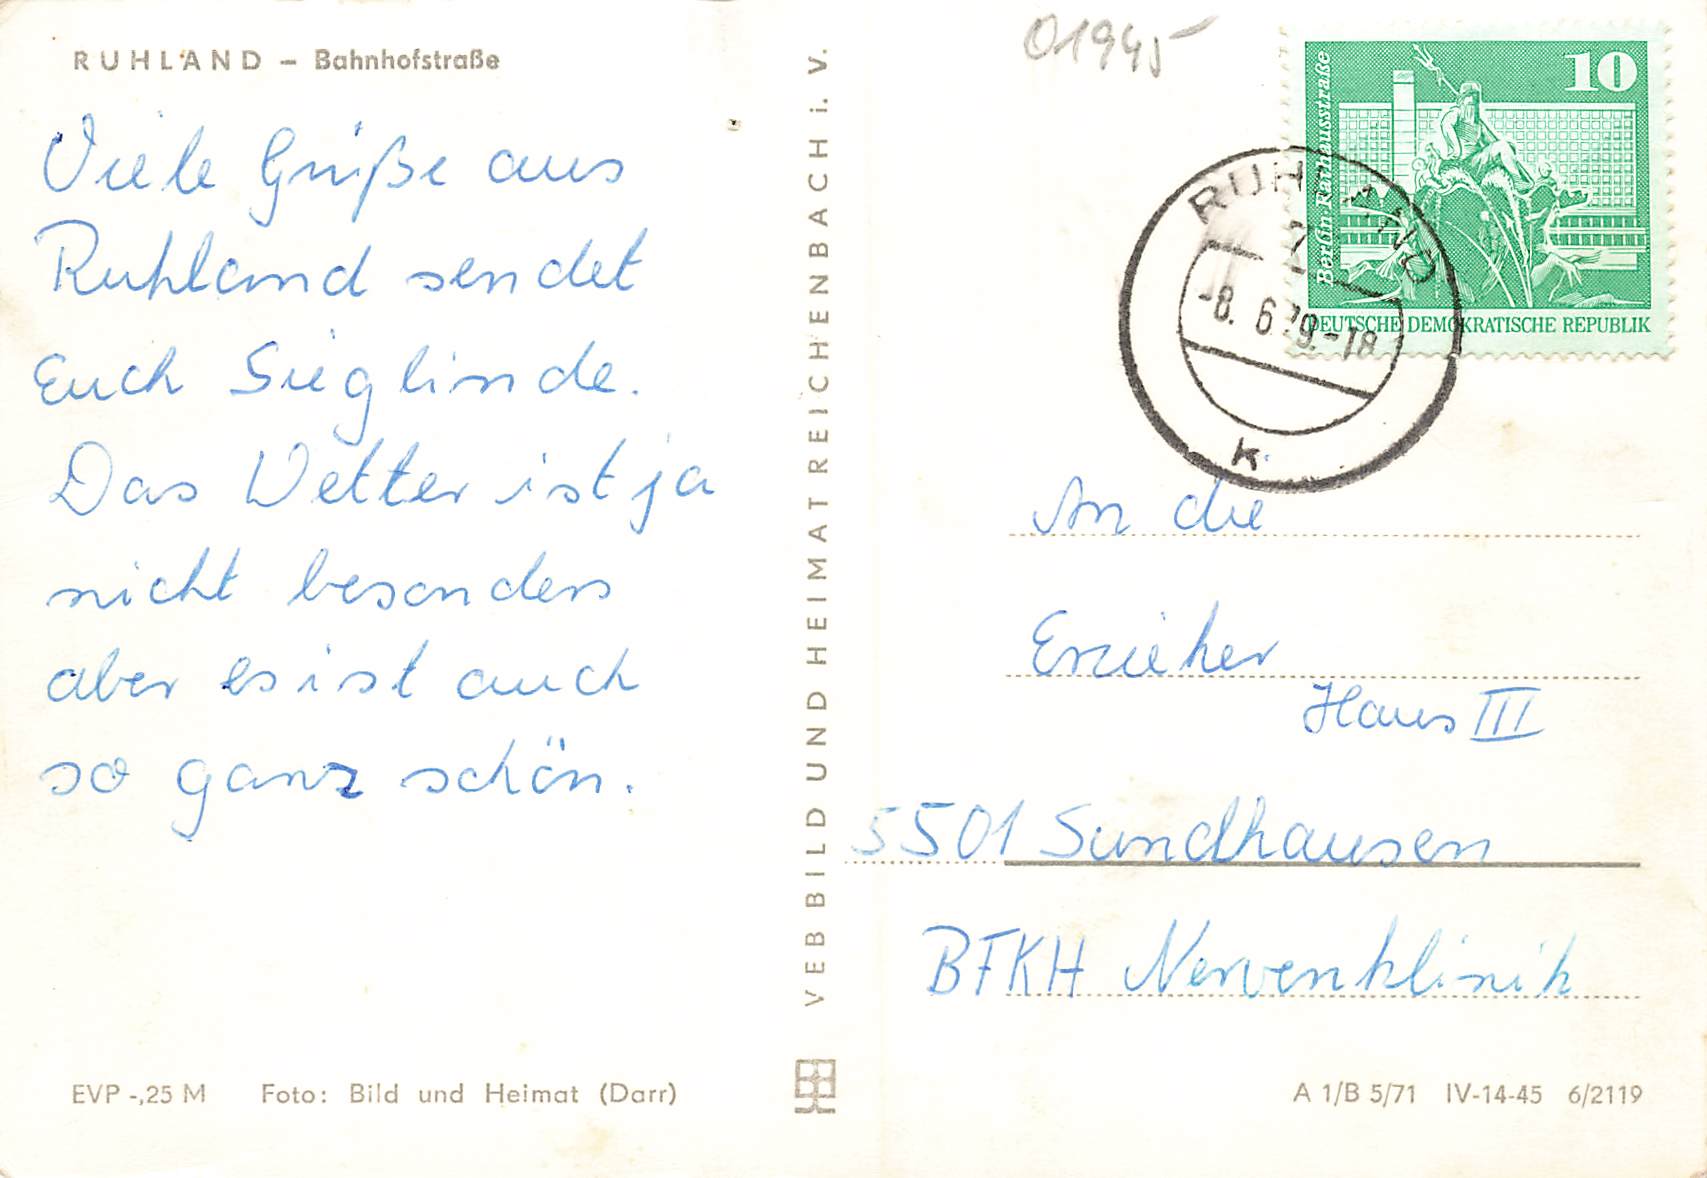 RUHLAND – Bahnhofstraße
Viele Grüße aus
Ruhland sendet
Euch Sieglinde.
Das Wetter ist ja
nicht besonders
aber es ist auch
so ganz schön.
EVP -,25 M Foto: Bild und Heimat (Darr)
VEB BILD UND HEIMAT REICHENBACH i. V.
01945
10
Berlin Rathausstraße
DEUTSCHE DEMOKRATISCHE REPUBLIK
RUHLAND
-8. 6.79.-18
k
An die
Erzieher
Haus III
5501 Sundhausen
BFKH Nervenklinik
A 1/B 5/71 IV-14-45 6/2119